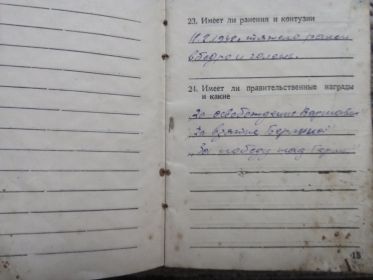 23. Имеет ли ранения и контузии
тяжело ранен
в бедро и голень.
24. Имеет ли правительственные награды
и какие
За освобождение Варшавы
За взятие Берлина
За победу над Герм
13